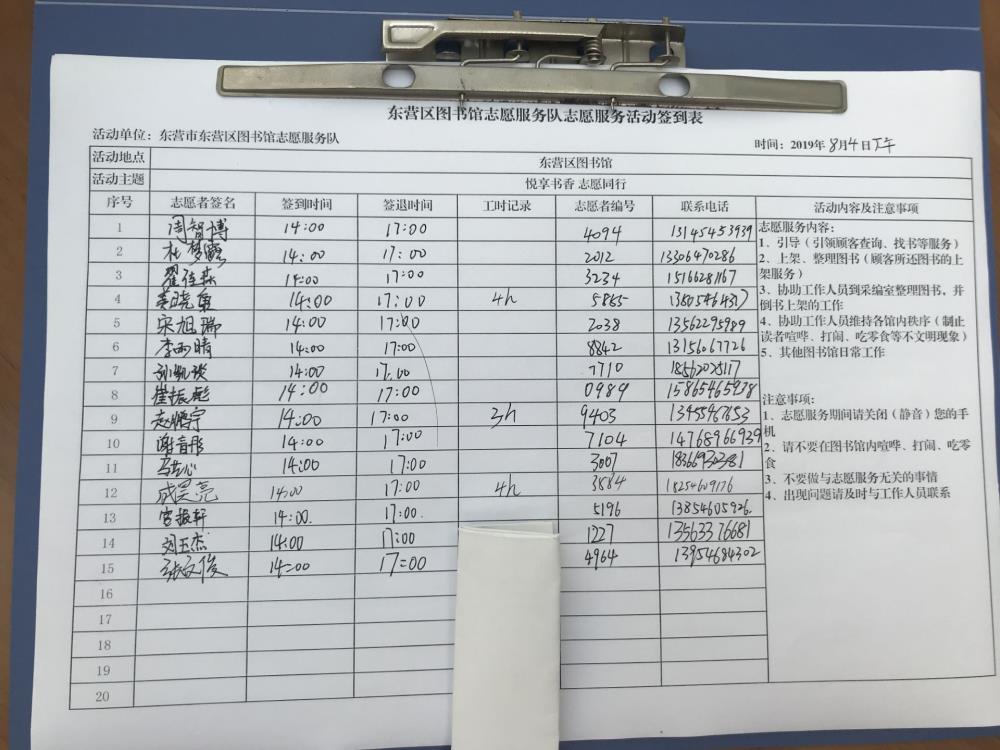 东营区图书馆志愿服务队志愿服务活动签到表
活动单位：东营市东营区图书馆志愿服务队
时间：2019年 8月4日下午
活动地点 东营区图书馆
活动主题 悦享书香 志愿同行
序号 志愿者签名 签到时间 签退时间 工时记录 志愿者编号 联系电话 活动内容及注意事项
1 周智博 14:00 17:00 4094 13145453939
2 杜梦露 14:00 17:00 2012 13306470286
3 翟佳 14:00 17:00 3234 15166281167
4 14:00 17:00 4h 5865
5 宋旭瑞 14:00 17:00 2038 13562295989
6 李雨晴 14:00 17:00 8842 13156067726
7 14:00 17:00 7710
8 崔振彪 14:00 17:00 0989 15865465938
9 赵鹏宇 14:00 17:00 3h 9403 13455467653
10 谢 14:00 17:00 7104 14768966939
11 14:00 17:00 3007
12 成昊亮 14:00 17:00 4h 3884
13 宫振轩 14:00. 17:00. 5196 13854605926.
14 刘玉杰 14:00 17:00 1227 13563376681
15 张文俊 14:00 17:00 4964 13954684302
16
17
18
19
20
志愿服务内容：
1、引导（引领顾客查询、找书等服务）
2、上架、整理图书（顾客所还图书的上
架服务）
3、协助工作人员到采编室整理图书，并
倒书上架的工作
4、协助工作人员维持各馆内秩序（制止
读者喧哗、打闹、吃零食等不文明现象）
5、其他图书馆日常工作
注意事项：
1、志愿服务期间请关闭（静音）您的手
机
2、请不要在图书馆内喧哗、打闹、吃零
食
3、不要做与志愿服务无关的事情
4、出现问题请及时与工作人员联系